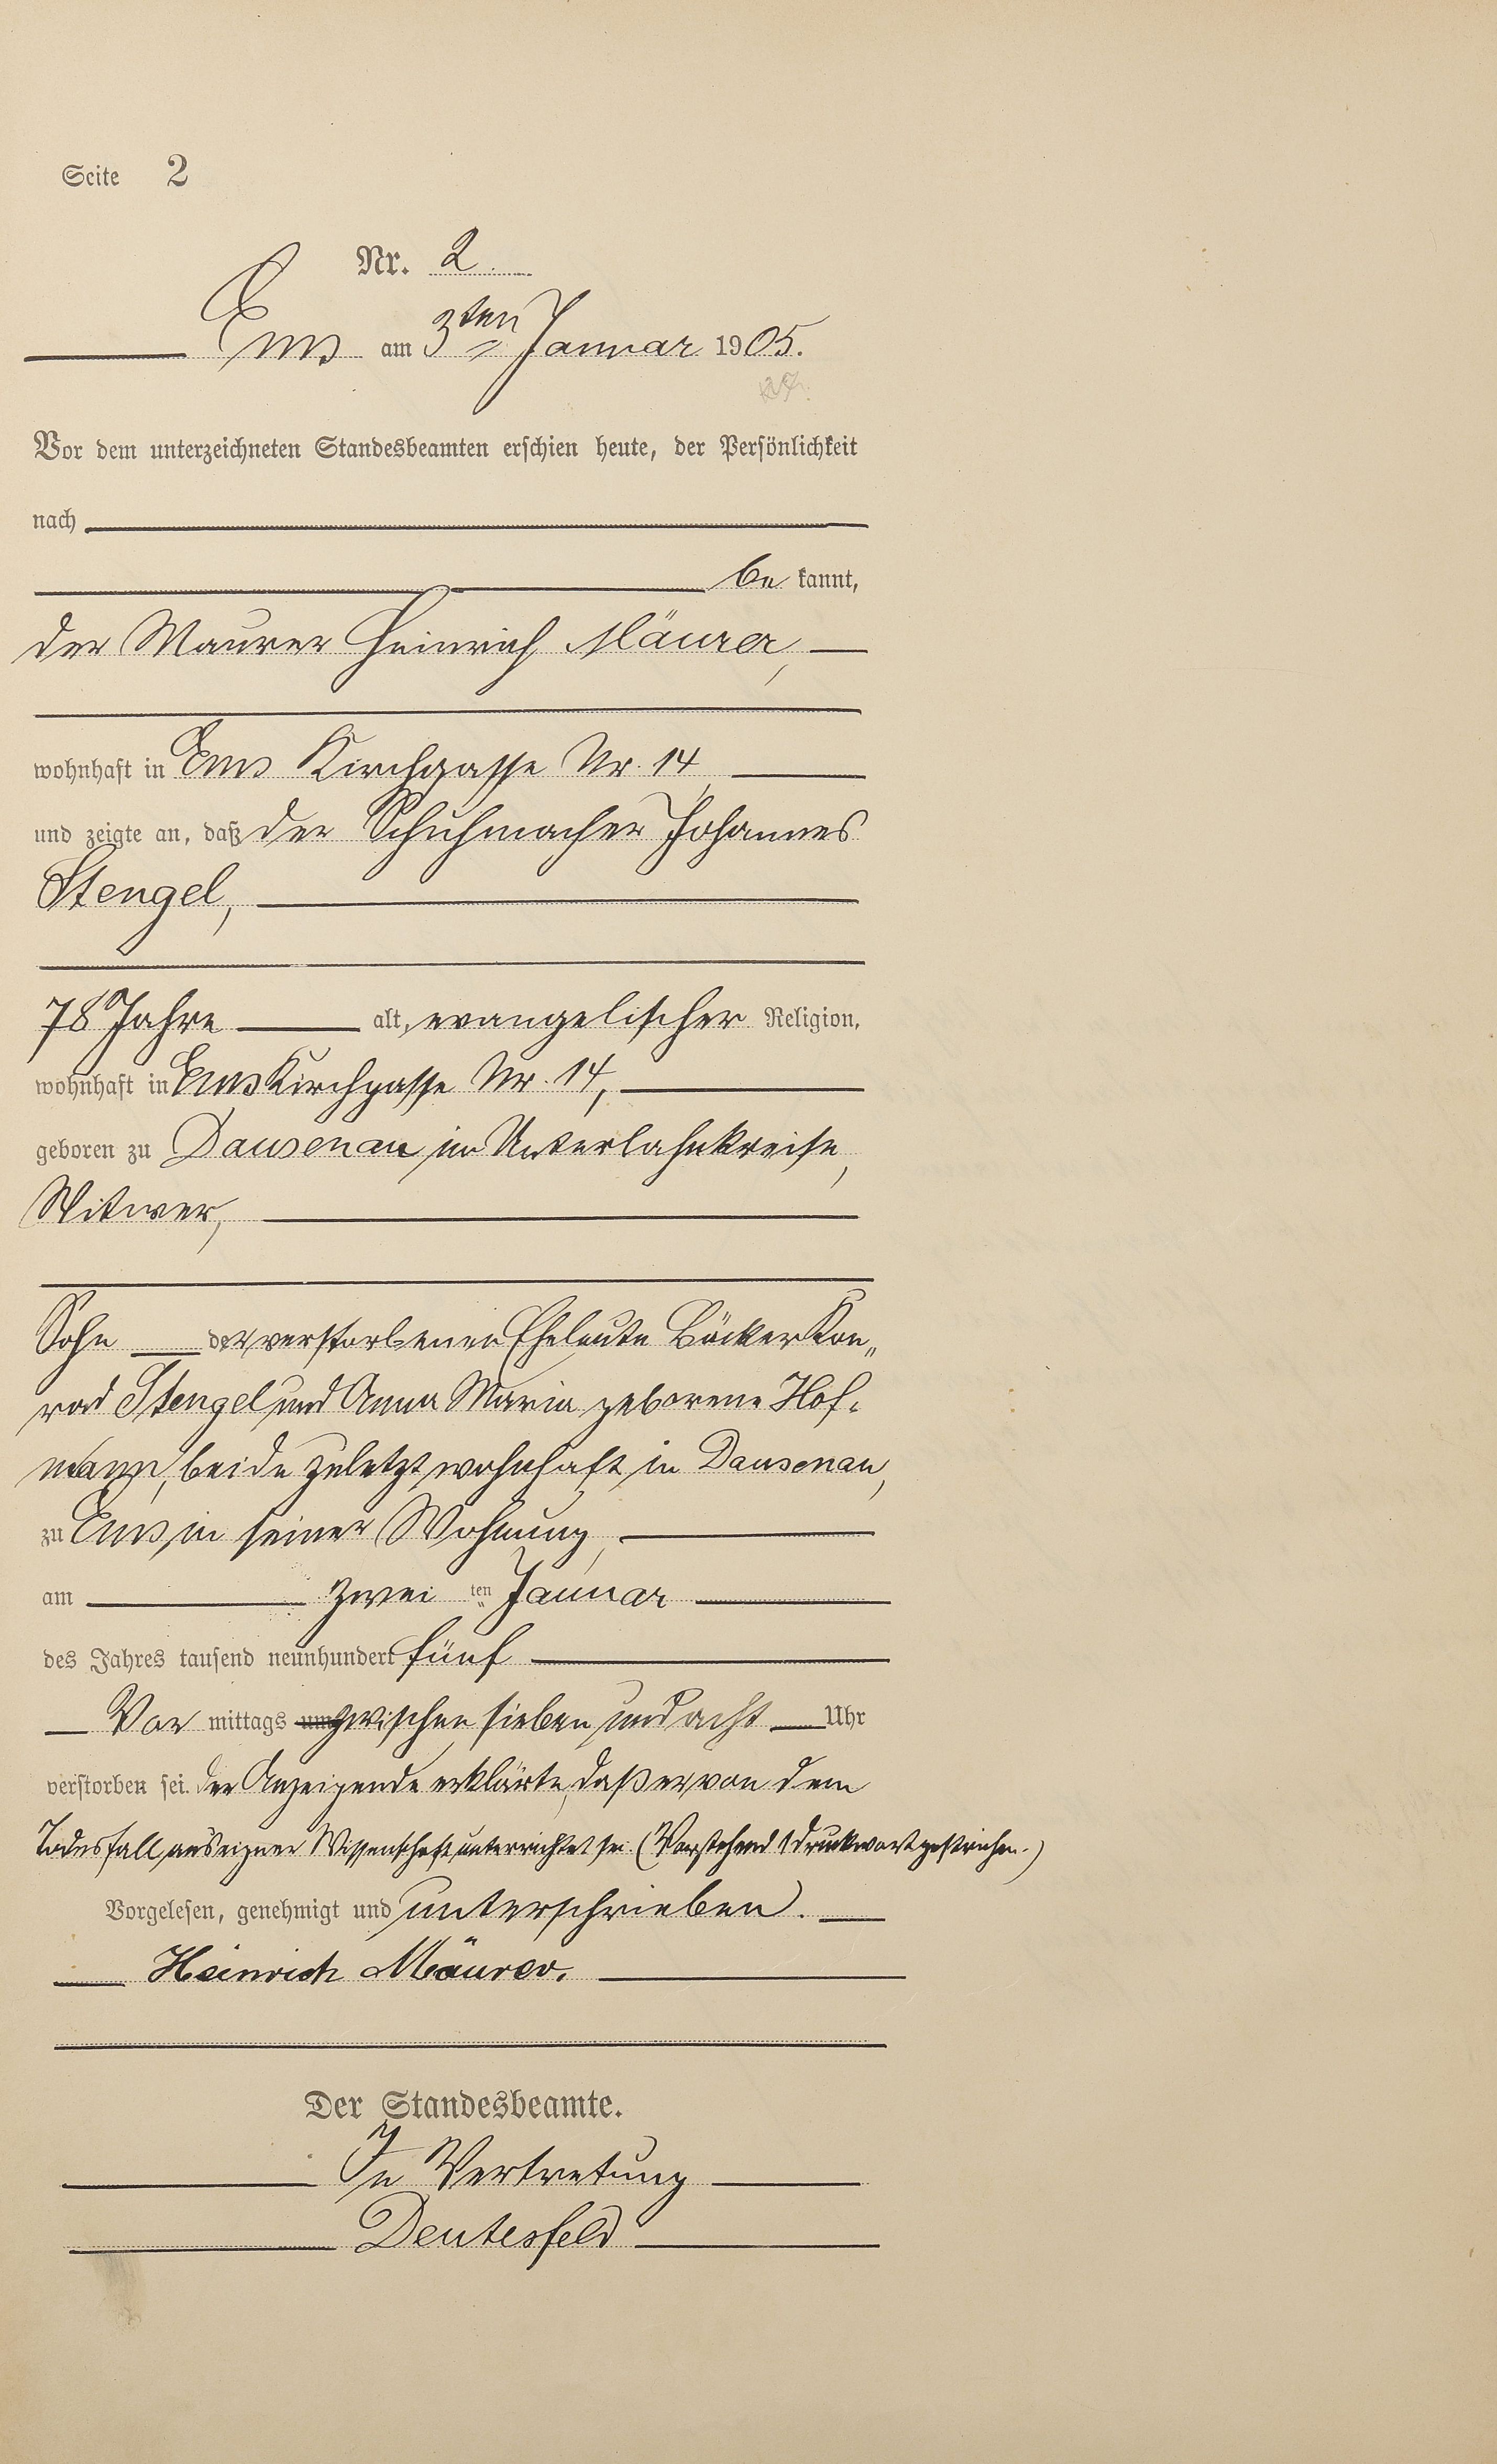 Seite 2
Nr. 2
Ems am 3ten Januar 1905.
Vor dem unterzeichneten Standesbeamten erschien heute, der Persönlichkeit
nach
be kannt,
der Maurer Heinrich Mäurer,
wohnhaft in Ems Kirchgasse Nr. 14
und zeigte an, daß der Schuhmacher Johannes
Stengel,
78 Jahre alt, evangelischer Religion,
wohnhaft in Ems Kirchgasse Nr. 14,
geboren zu Dausenau im Unterlahnkreise,
Witwer,
Sohn der verstorbenen Eheleute Bäcker Kon„
rad Stengel und Anna Maria geborene Hof-
mann, beide zuletzt wohnhaft in Dausenau,
zu Ems in seiner Wohnung,
am zwei ten Januar
des Jahres tausend neunhundert fünf
Vor mittags um zwischen sieben und acht Uhr
verstorben sei. Der Anzeigende erklärte, daß er von dem
Todesfall aus eigner Wissenschaft unterrichtet sei. (Vorstehend 1 Druckwort gestrichen.)
Vorgelesen, genehmigt und unterschrieben.
Heinrich Mäurer.
Der Standesbeamte.
In Vertretung
Deutesfeld